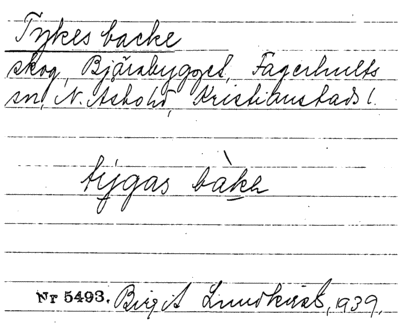 Tykes backe
skog, Bjärabygget, Fagerhults
sn, N. Åsbo hd, Kristianstads l.
týgas bàkə
Nr 5493. Birgit Lundkvist, 1939.